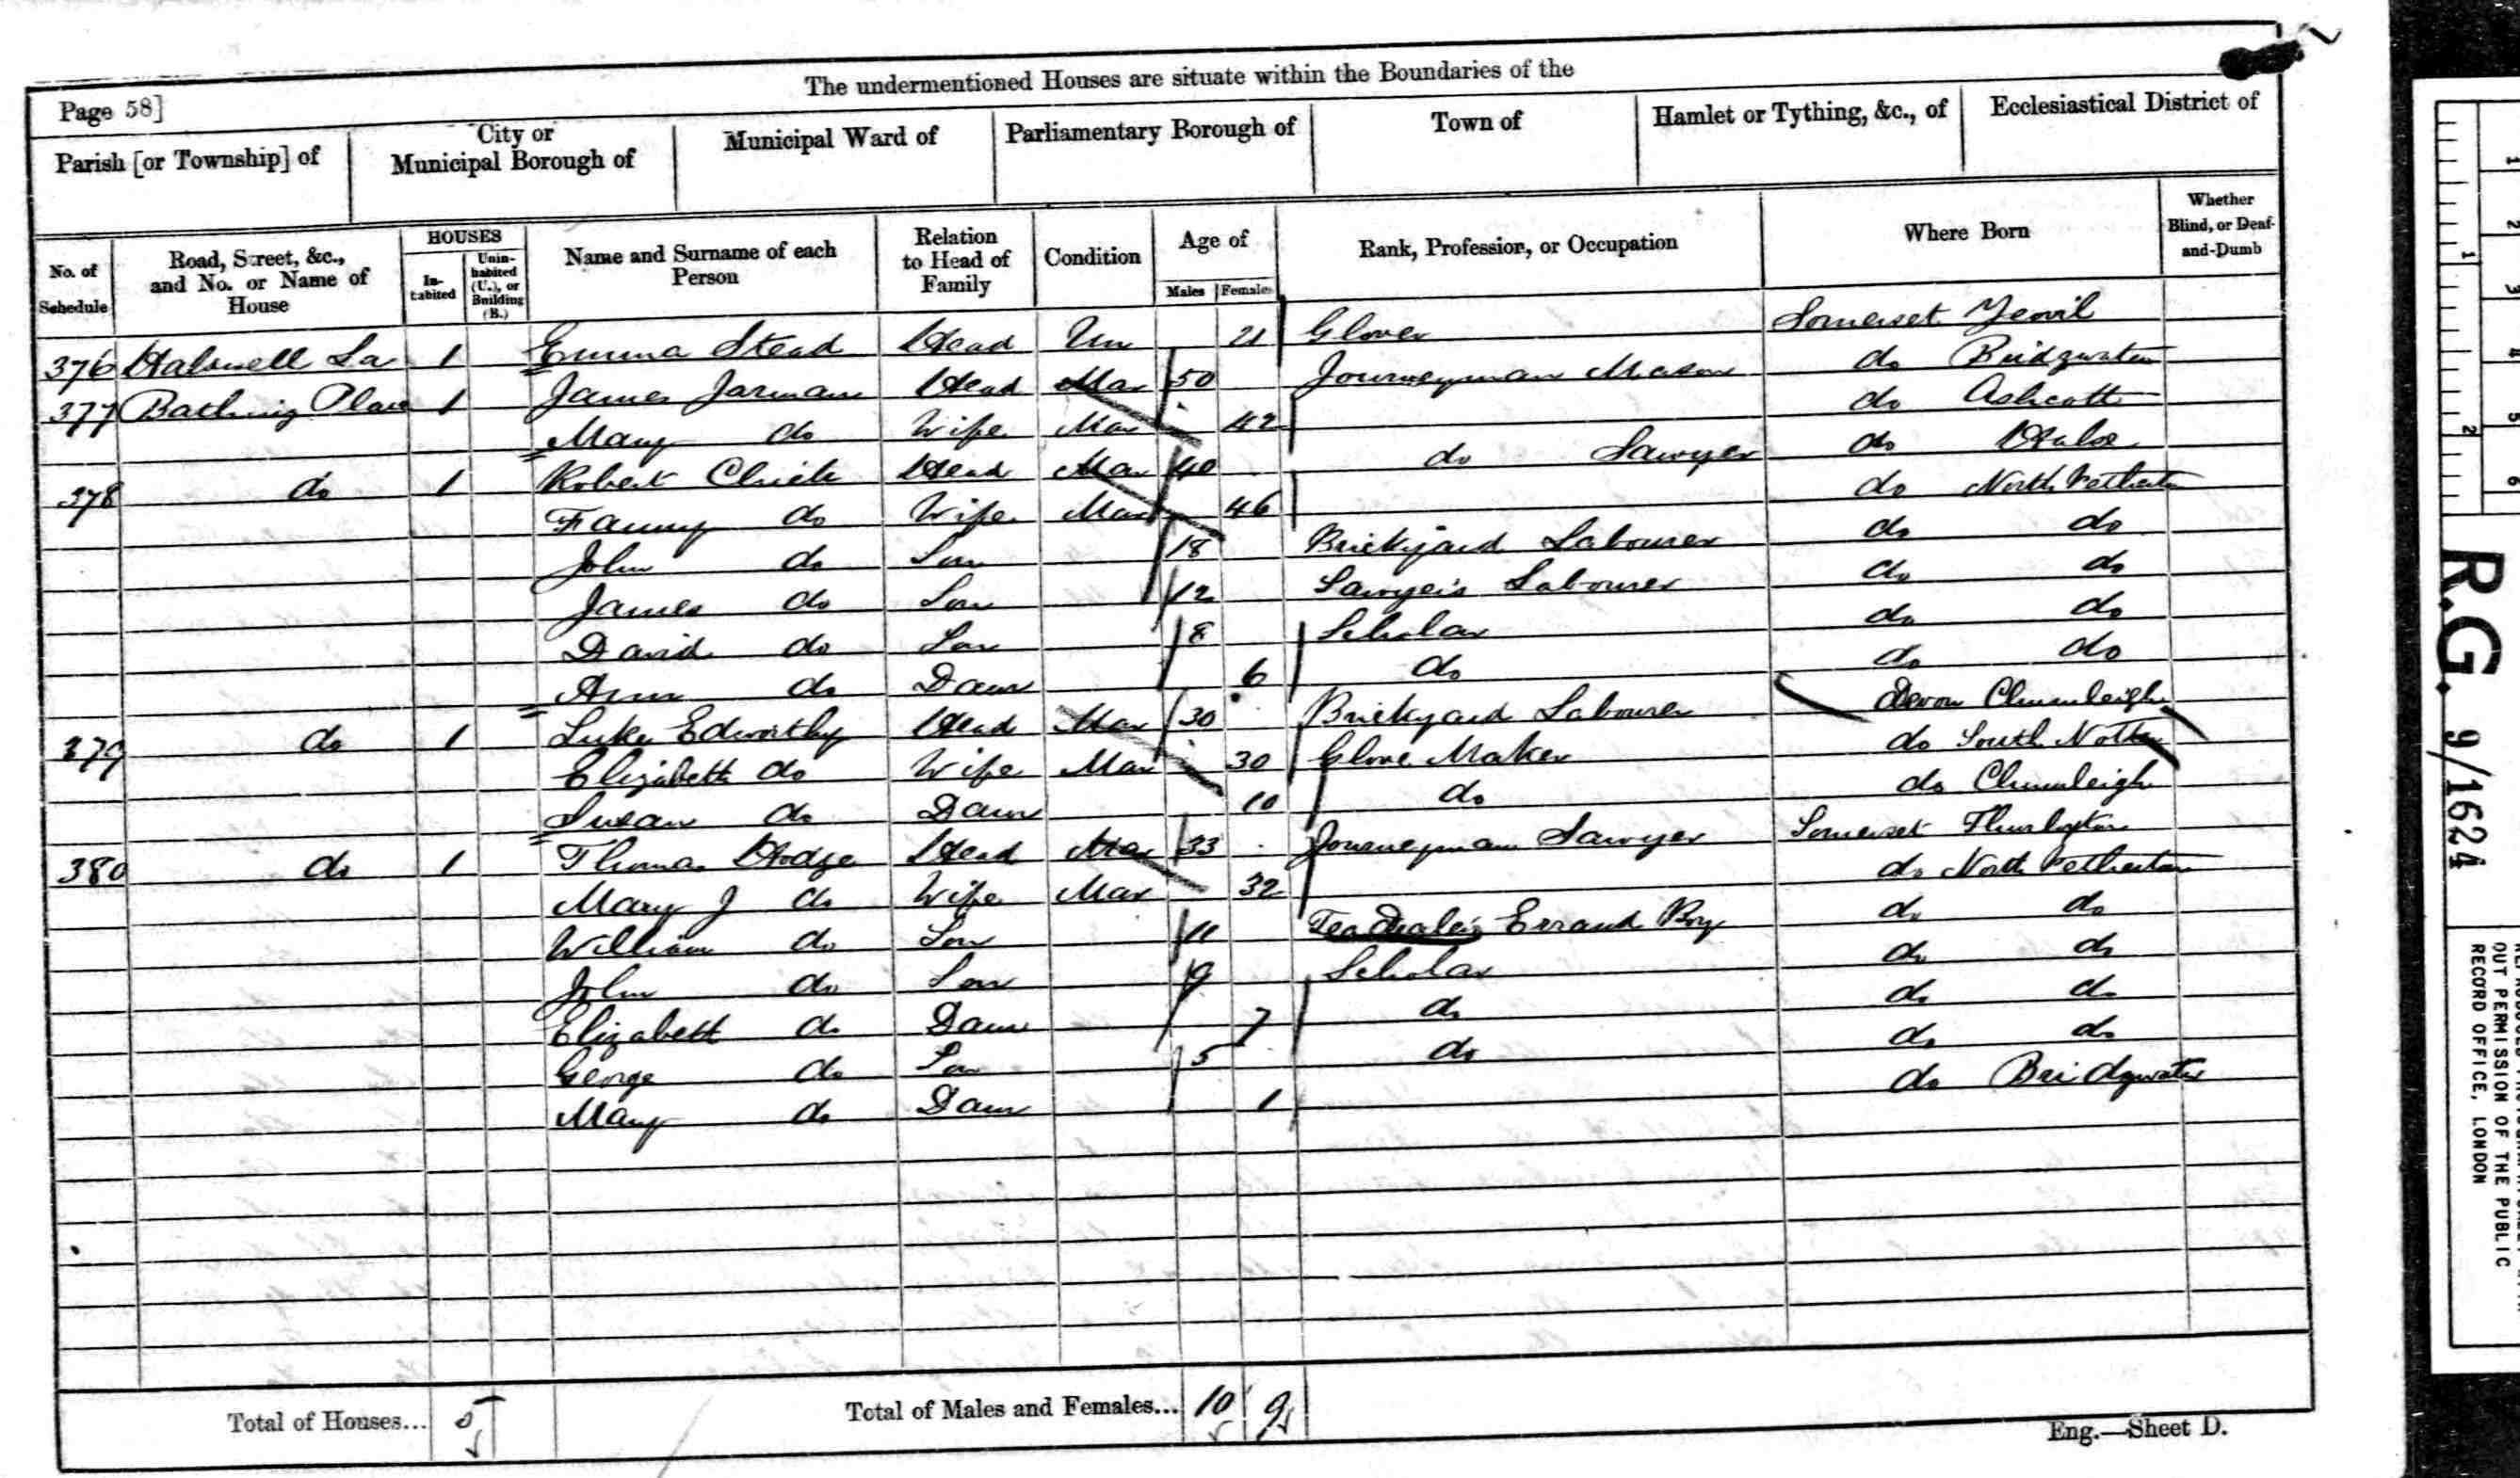 The undermentioned Houses are situate within the Boundaries of the
Page 58]
Parish [or Township] of
City or Municipal Borough of
Municipal Ward of
Parliamentary Borough of
Town of
Hamlet or Tything, &c., of
Ecclesiastical District of
No. of Schedule
Road, Street, &c., and No. or Name of House
HOUSES
In-habited
Unin-habited (U.), or Building (B.)
Name and Surname of each Person
Relation to Head of Family
Condition
Age of
Males Females
Rank, Profession, or Occupation
Where Born
Whether Blind, or Deaf-and-Dumb
376 Halswell La 1 Emma Stead Head Un 21 Glover Somerset Yeovil
377 Bathing Place 1 James Jarman Head Mar 50 Journeyman Mason do Bridgwater
Mary do Wife Mar 42 do Ashcott
378 do 1 Robert Chick Head Mar 40 do Sawyer do Halse
Fanny do Wife Mar 46 do North Petherton
John do Son 18 Brickyard Labourer do do
James do Son 12 Sawyer's Labourer do do
David do Son 8 Scholar do do
Ann do Daur 6 do do do
379 do 1 Luke Edworthy Head Mar 30 Brickyard Labourer Devon Chumleigh
Elizabeth do Wife Mar 30 Glove Maker do South Molton
Susan do Daur 10 do do Chumleigh
380 do 1 Thomas Hodge Head Mar 33 Journeyman Sawyer Somerset Thurloxton
Mary J do Wife Mar 32 do North Petherton
William do Son 11 Tea Dealer's Errand Boy do do
John do Son 9 Scholar do do
Elizabeth do Daur 7 do do do
George do Son 5 do do do
Mary do Daur 1 do Bridgwater
Total of Houses... 5
Total of Males and Females... 10 9
Eng.—Sheet D.
R.G. 9/1624
OUT PERMISSION OF THE PUBLIC
RECORD OFFICE, LONDON